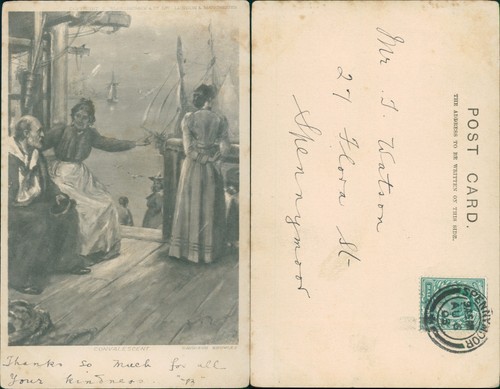 CONVALESCENT
Thanks so much for all
your kindness.
Mr T. Watson
29 Flora St-
Spennymoor
POST CARD.
THE ADDRESS TO BE WRITTEN ON THIS SIDE.
SPENNYMOOR
AU